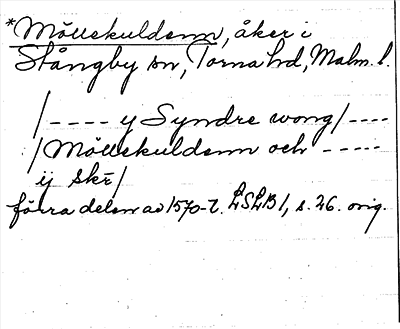 *Möllekuldenn, åker i
Stångby sn, Torna hd, Malm. l.
/---- y Syndre wong/----
/Möllekuldenn och -----
ij skr/
förra delen av 1570-t. LSLB 1, s. 26. orig.